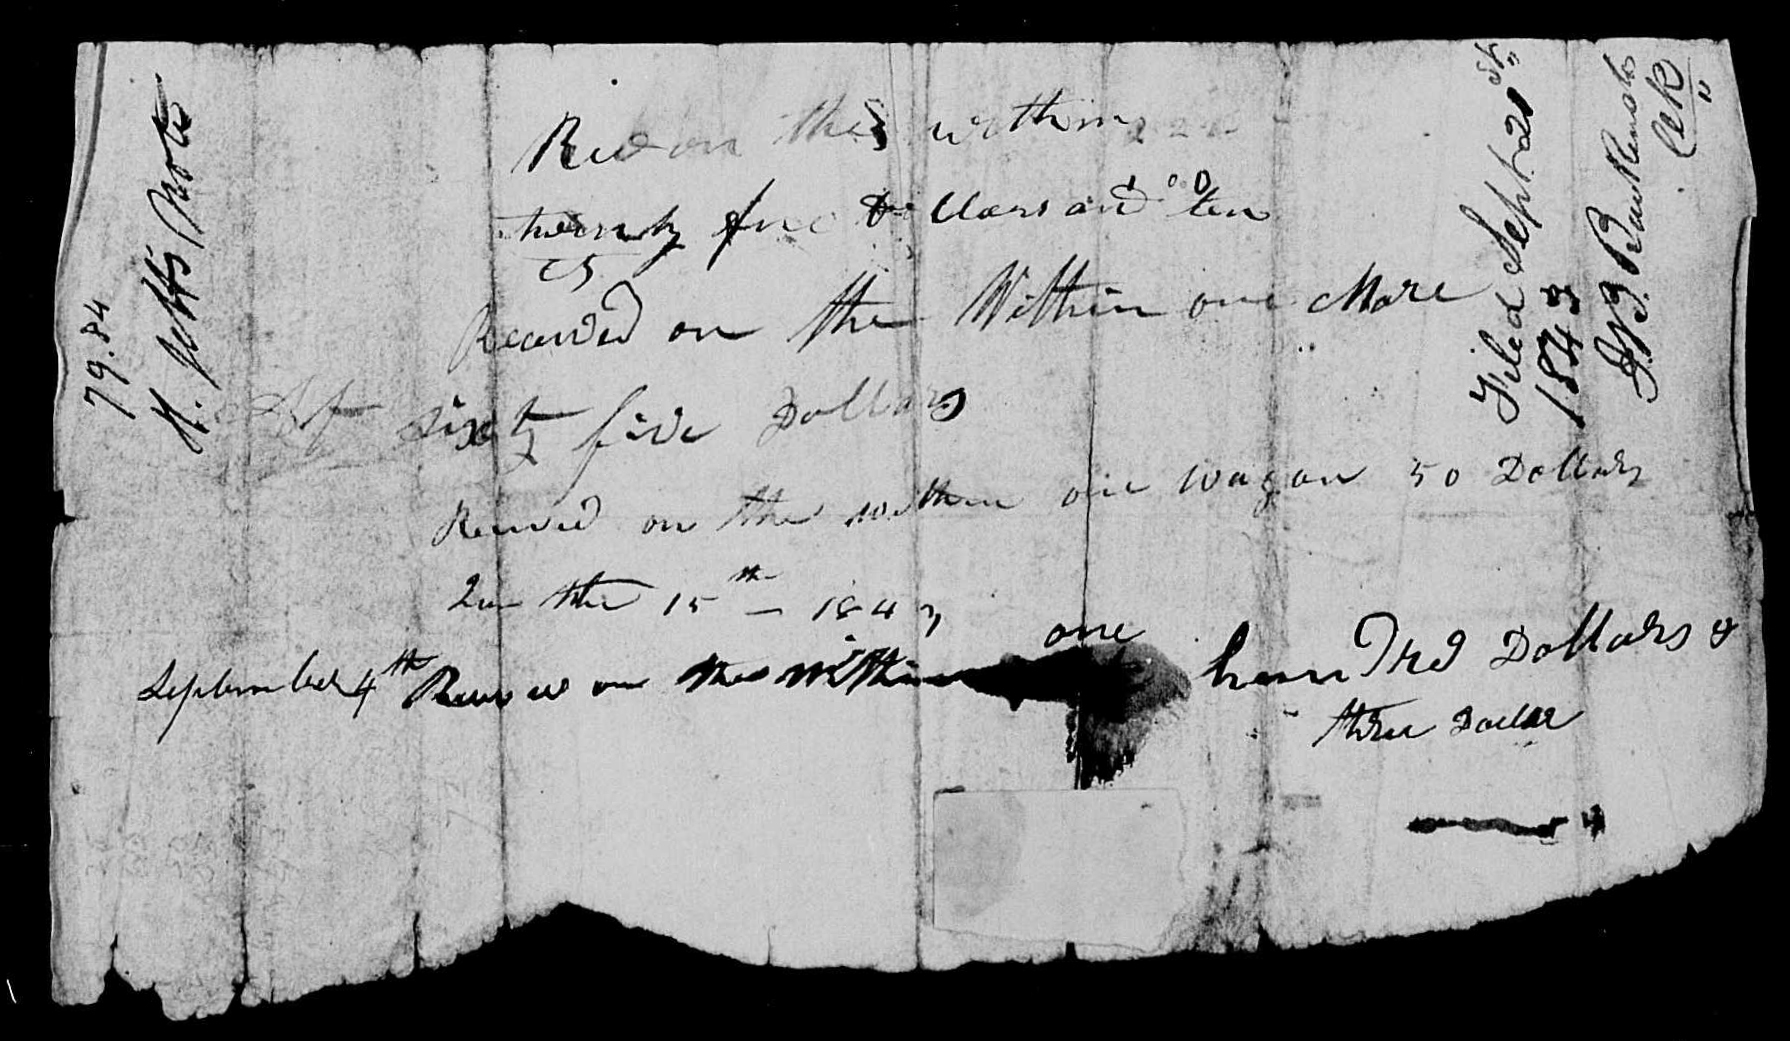 79.84
H. Jetts Note
Recd on the within
twenty five Dollars and ten
cts
Received on the Within one Mare
At sixty five Dollars
Receved on the within one wagon 50 Dollars
the 15th - 1843
September 4th Receved on the Within one hundred Dollars &
three Dollar
Filed Sept. 21st
1843
Clk